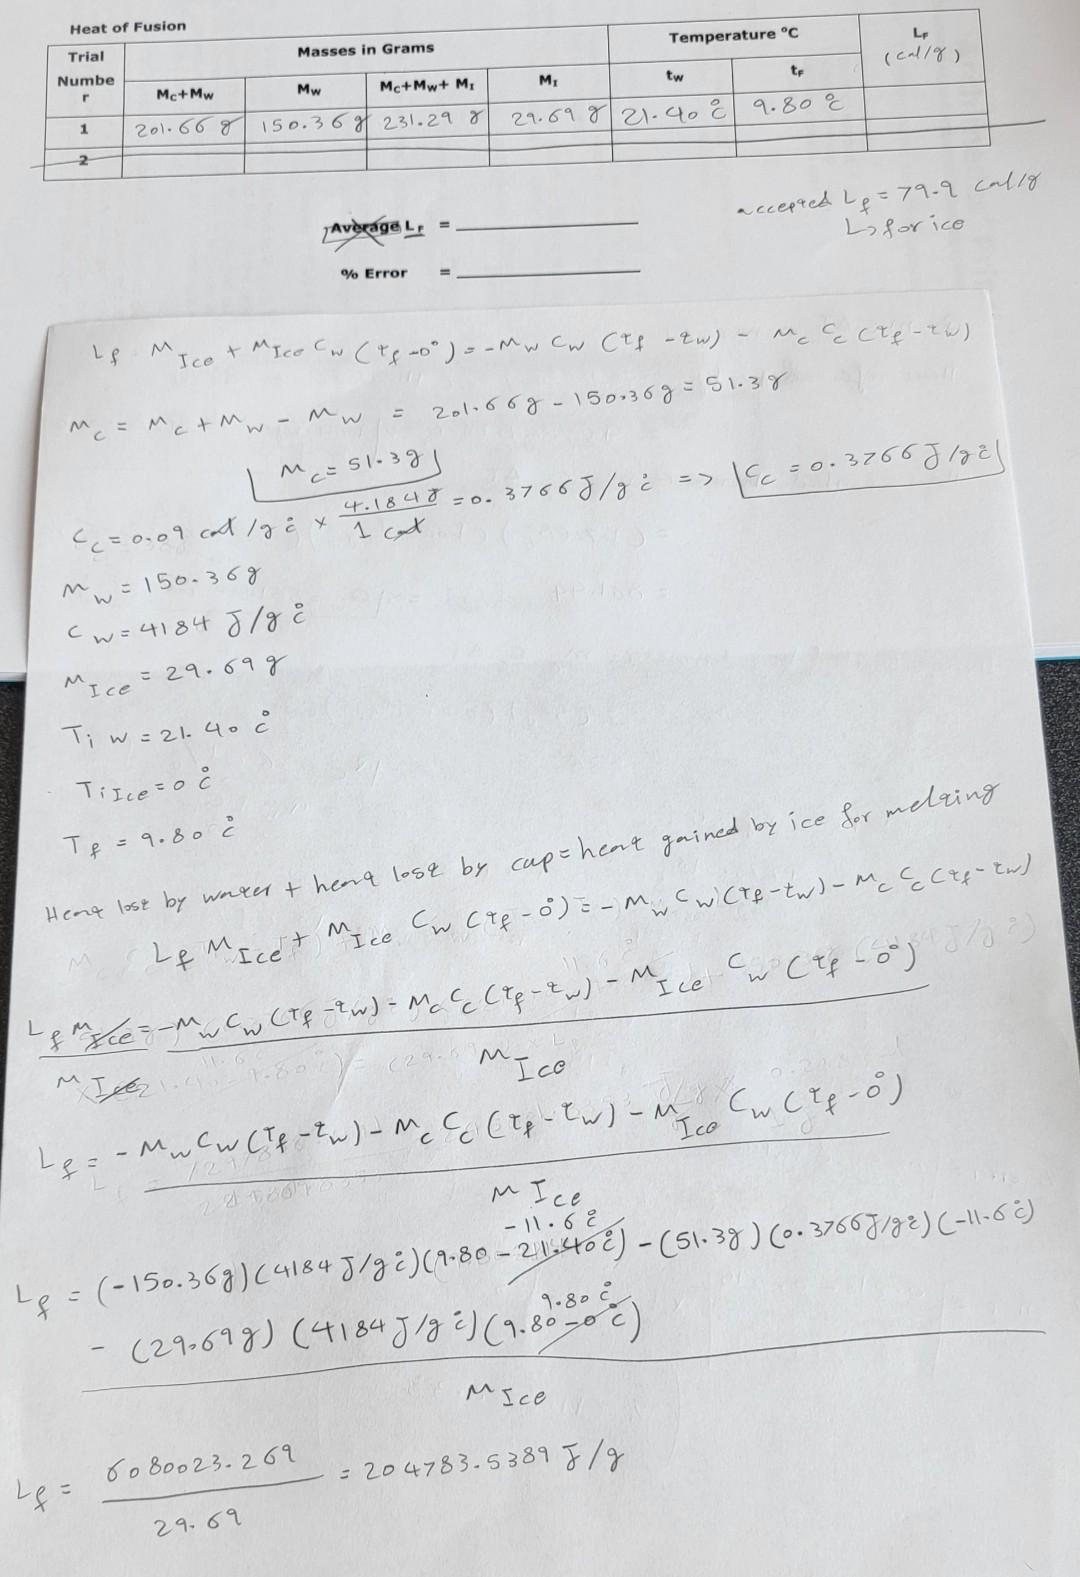 Heat of Fusion
Trial Numbe r | Masses in Grams | Temperature °C | LF (cal/g)
MC+MW | MW | MC+MW+ MI | MI | tW | tF
1 | 201.66 g | 150.36 g | 231.29 g | 29.69 g | 21.40 °C | 9.80 °C
2
accepted Lf = 79.9 cal/g
↳ for ice
Average LF =
% Error =
Lf MIce + MIce Cw (tf -0°) = -Mw Cw (tf -tw) - Mc Cc (tf -tw)
Mc = Mc + Mw - Mw = 201.66g - 150.36g = 51.3g
Mc = 51.3g
Cc = 0.09 cal /g °C x 4.184J / 1 cal = 0.3766 J/g °C => Cc = 0.3766 J/g°C
Mw = 150.36g
Cw = 4184 J/g °C
MIce = 29.69g
Ti w = 21.40 °C
Ti Ice = 0 °C
Tf = 9.80 °C
Heat lost by water + heat lost by cup = heat gained by ice for melting
Lf MIce + MIce Cw (tf - 0°) = - Mw Cw (tf - tw) - Mc Cc (tf - tw)
Lf MIce = -Mw Cw (tf -tw) - Mc Cc (tf -tw) - MIce Cw (tf - 0°)
MIce MIce
Lf = - Mw Cw (Tf -tw) - Mc Cc (tf - tw) - MIce Cw (tf - 0°)
MIce
-11.6 °C
Lf = (-150.36g) (4184 J/g°C) (9.80 - 21.40°C) - (51.3g) (0.3766 J/g°C) (-11.6°C)
9.80 °C
- (29.69g) (4184 J/g°C) (9.80 - 0°C)
MIce
Lf = 6080023.269 / 29.69 = 204783.5389 J/g